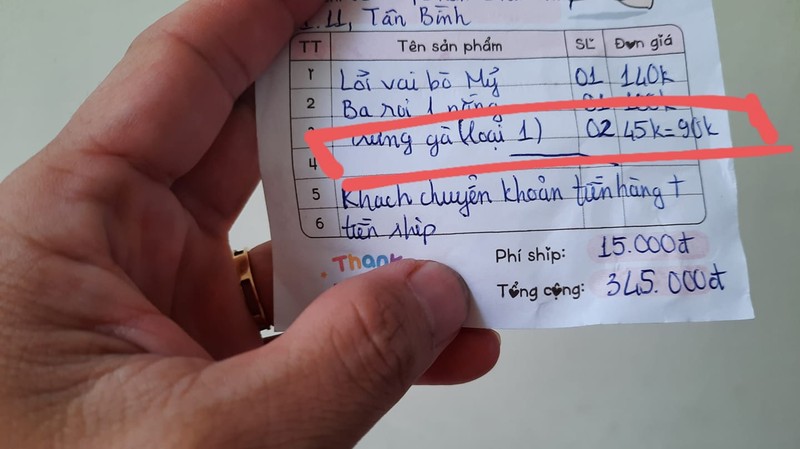 1.11, Tân Bình
TT Tên sản phẩm SL Đơn giá
1 Lõi vai bò Mỹ 01 140k
2 Ba rọi 1 nắng 01 100k
3 Trứng gà (loại 1) 02 45k=90k
4
5 Khách chuyển khoản tiền hàng +
6 tiền ship
Thank
Phí ship: 15.000đ
Tổng cộng: 345.000đ